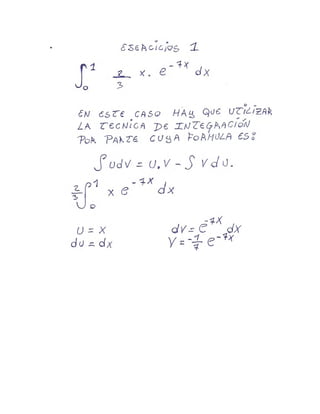 ESERCICIOS 1
∫₀¹ 2/3 x. e^-7x dx
EN ESTE CASO HAY QUE UTILIZAR
LA TECNICA DE INTEGRACIÓN
POR PARTE CUYA FORMULA ES:
∫udv = u.v - ∫vdu.
2/3 ∫₀¹ x e^-7x dx
u = x dv = e^-7x dx
du = dx v = -1/7 e^-7x